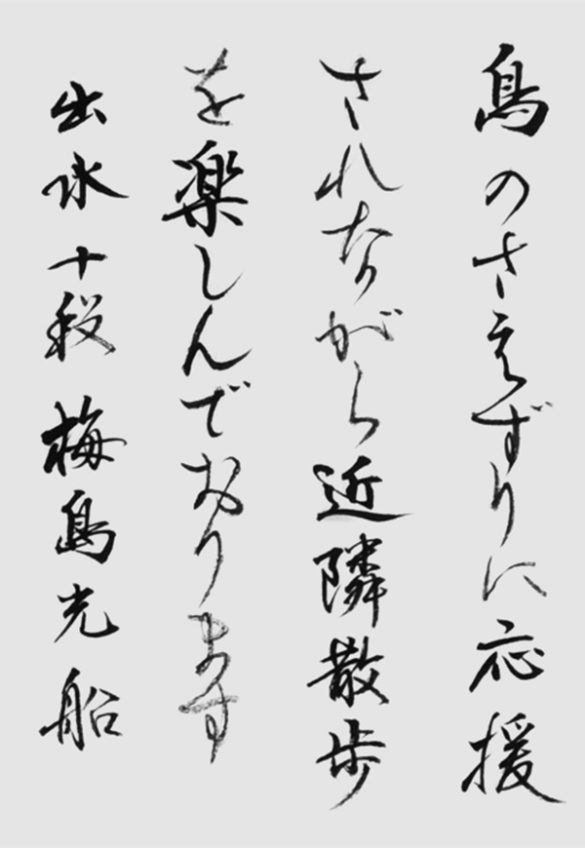 鳥のさえずりに応援
されながら近隣散歩
を楽しんでおります
出水十段 梅島光船